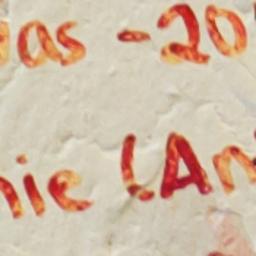 as -20
nie (An